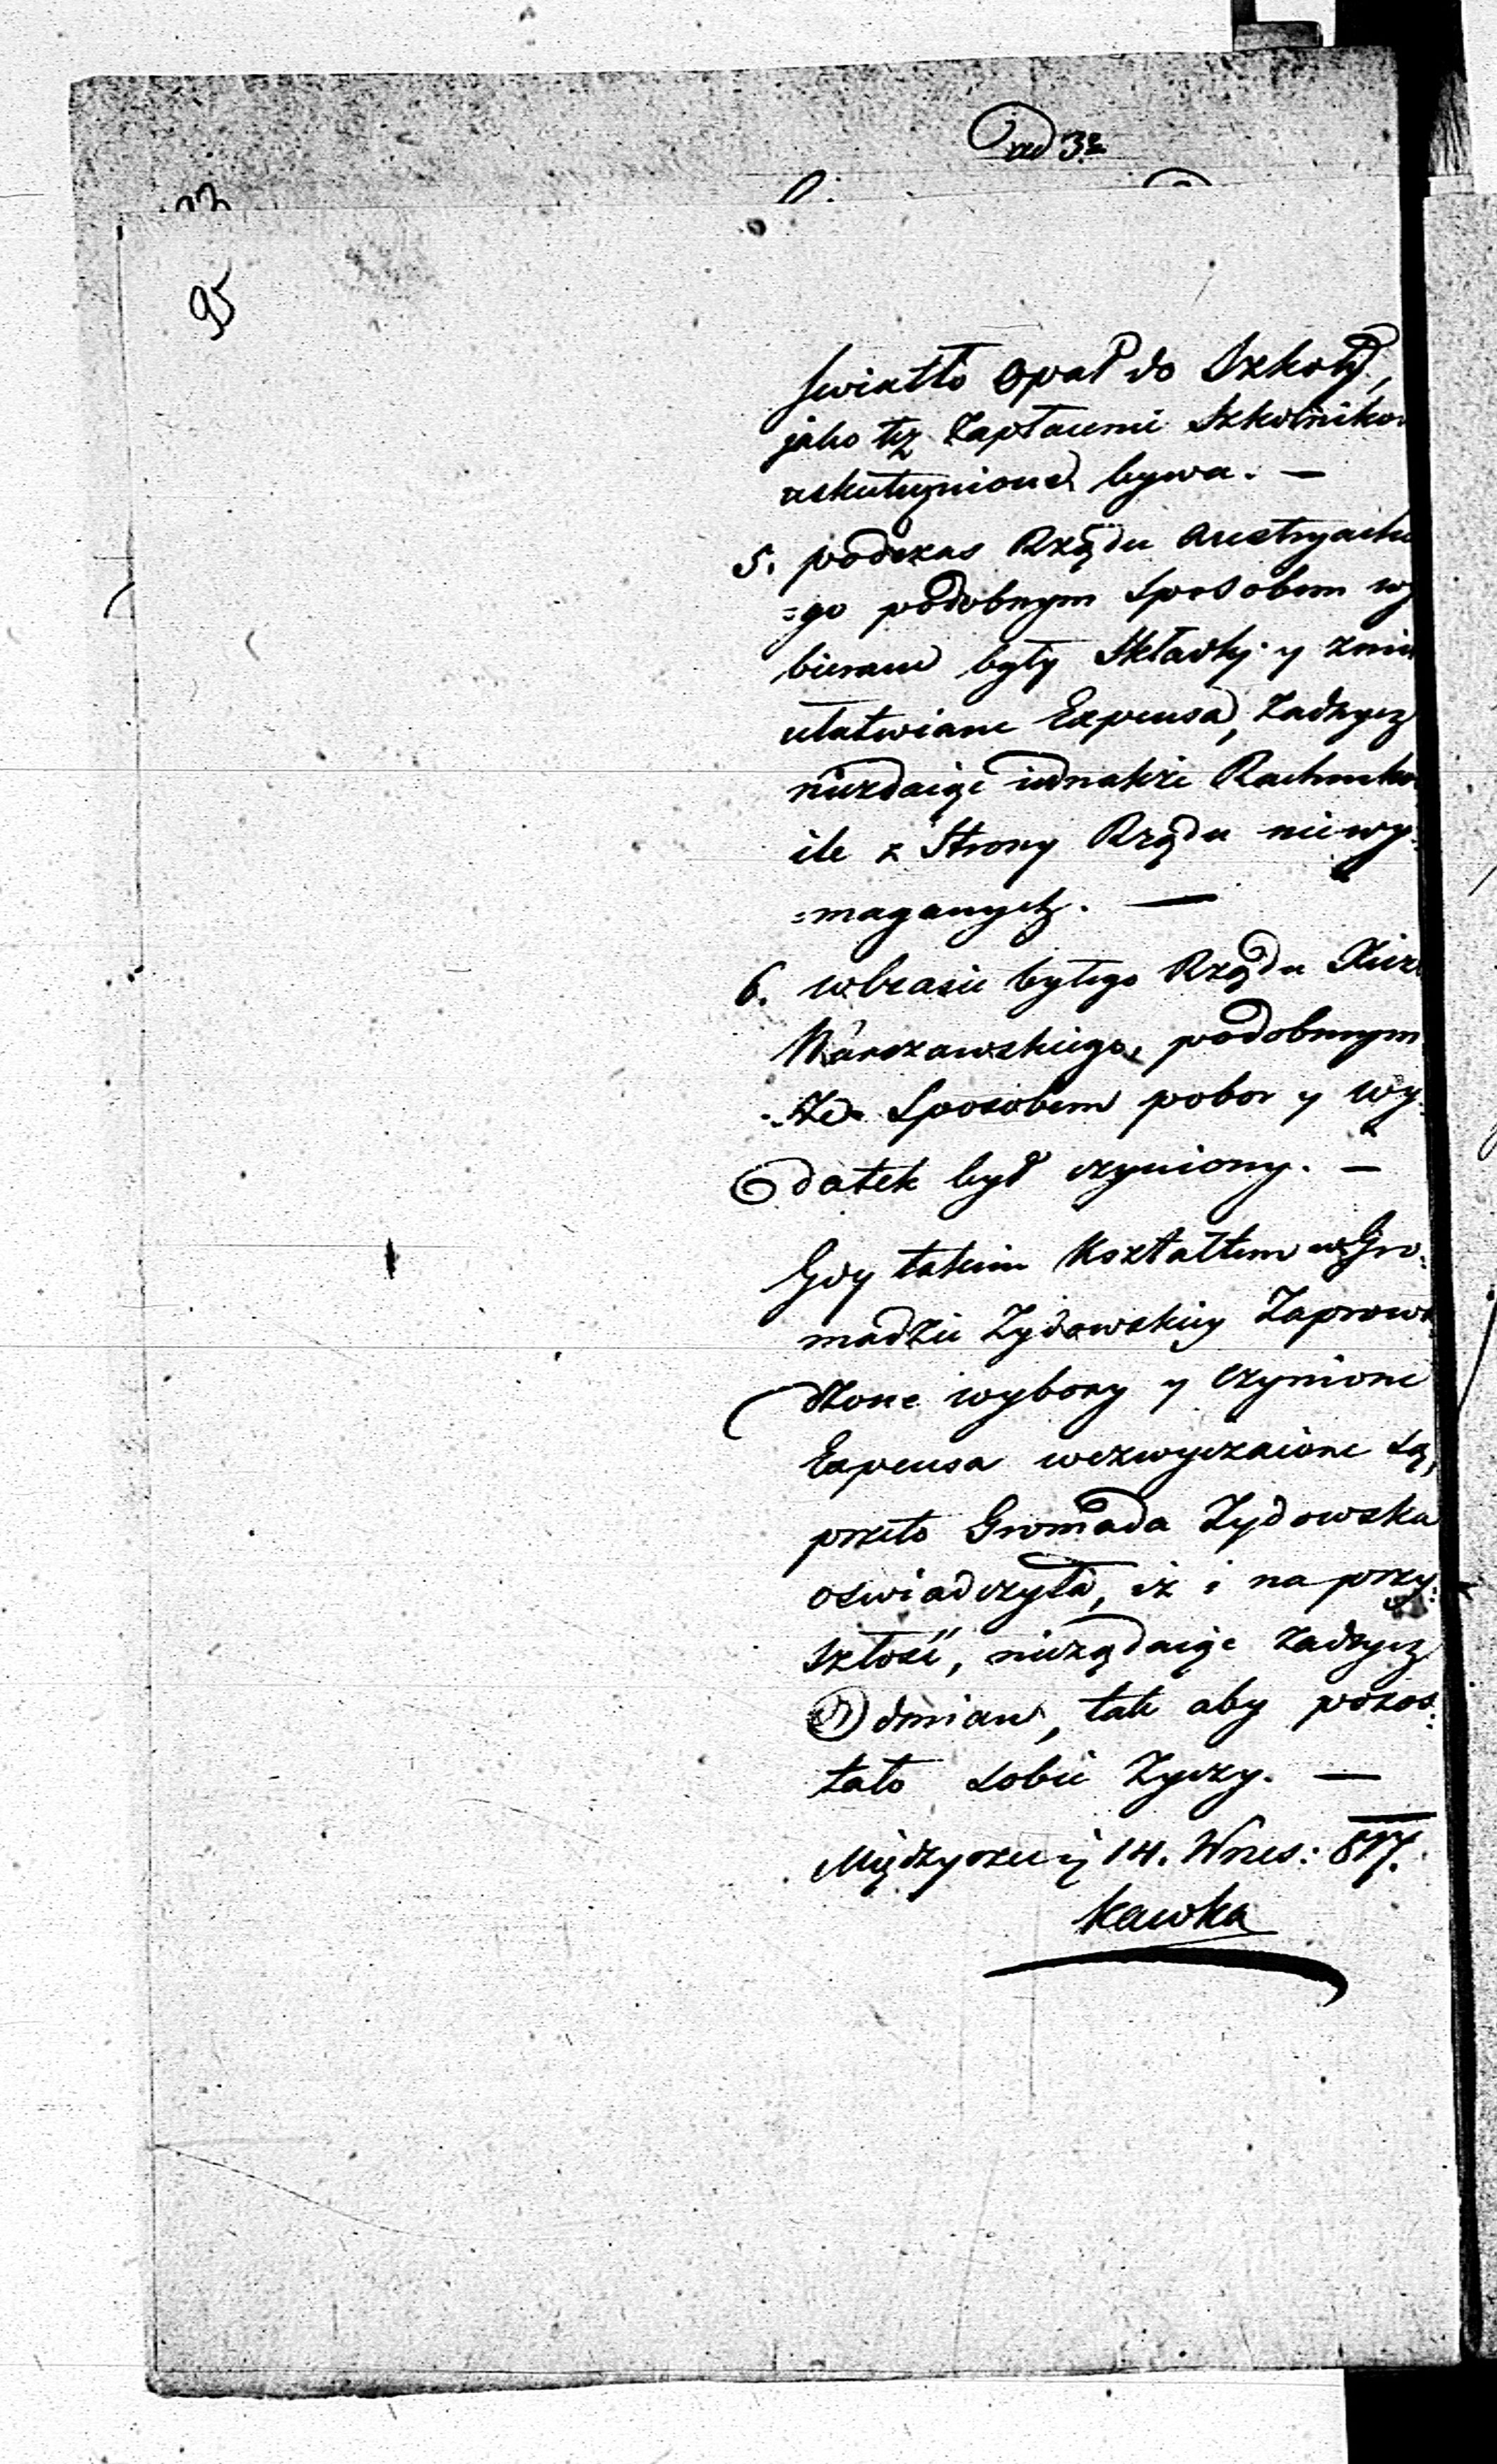 ad 3
95
swiatło Opał do Szkoły,
jako też Zapłacenie Szkolnikow
uskutecznione bywa. —
5. podczas Rządu Austryackie
=go podobnym Sposobem wy
bierane były Składki y zmi
ułatwiane Expensa, żadnych
niezdaiąc iednakże Rachunkow
ile z Strony Rządu niewy=
=maganych. —
6. w czasie byłego Rządu Xięz
Warszawskiego, podobnym
że Sposobem pobor y wy=
datek był czyniony. —
Gdy takim Kształtem w Gro=
madzie Żydowskiey Zaprowa
dzone wybory y czynione
Expensa wezwyczaione są,
przeto Gromada Żydowska
oswiadczyła, iż i na przy=
szłość, nieżądaiąc żadnych
Odmian, tak aby pozos=
tało sobie życzy. —
Międzyrzec 14. Wrzes: 817.
Kawka